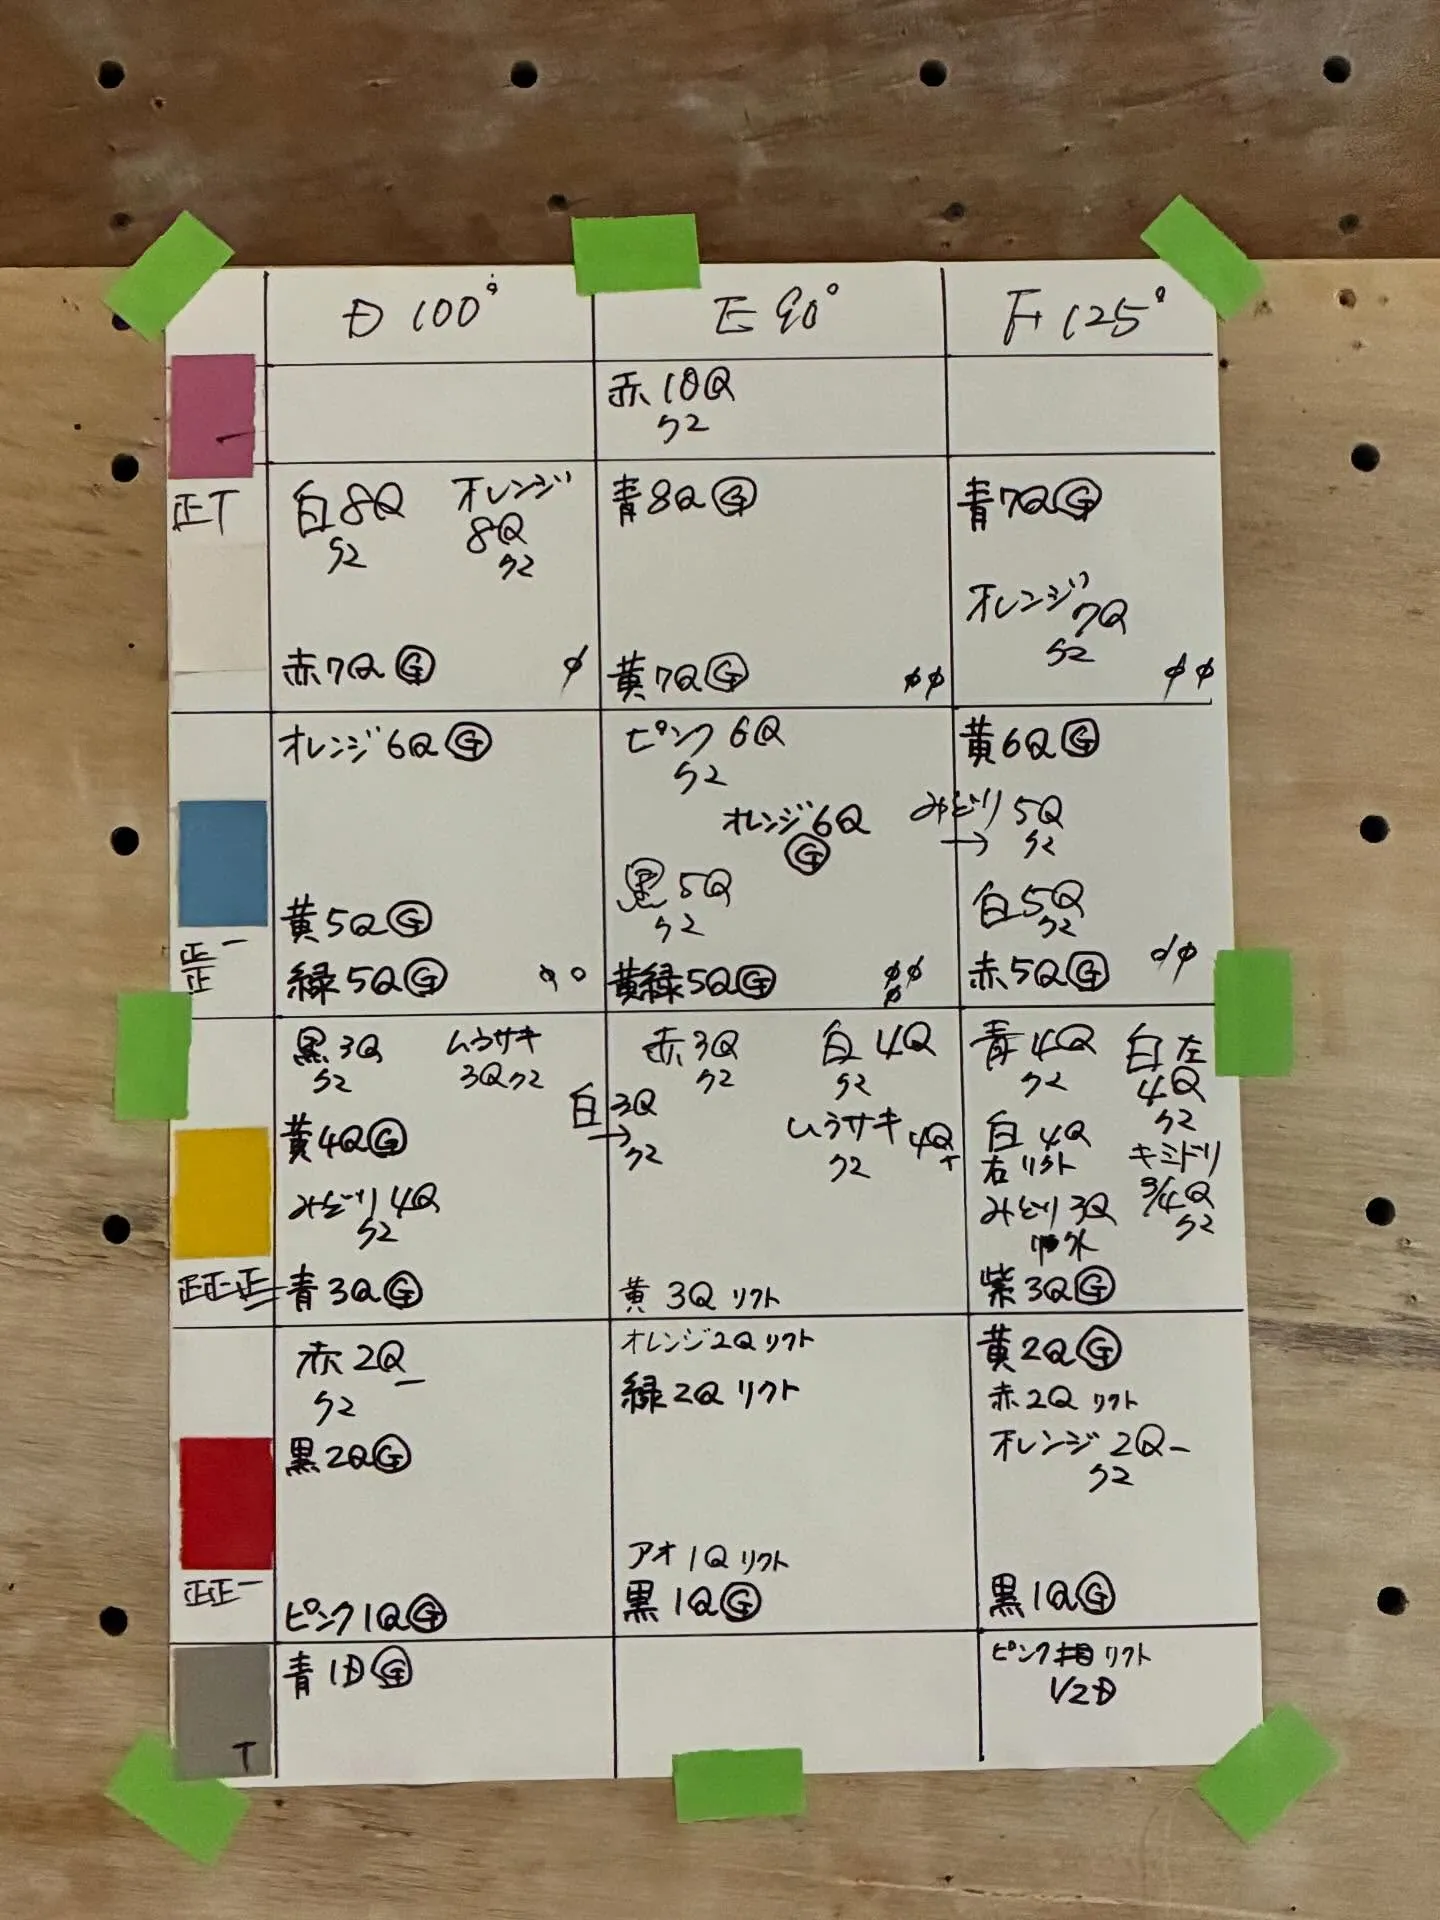 D 100°
E 90°
F 125°
赤 10Q
ク2
正T
白 8Q
ク2
オレンジ
8Q
ク2
赤 7Q Ⓖ
φ
青 8Q Ⓖ
黄 7Q Ⓖ
φφ
青 7Q Ⓖ
オレンジ 7Q
ク2
φφ
正一
正
オレンジ 6Q Ⓖ
黄 5Q Ⓖ
緑 5Q Ⓖ
ピンク 6Q
ク2
オレンジ 6Q
Ⓖ
黒 5Q
ク2
黄緑 5Q Ⓖ
φφ
φ
黄 6Q Ⓖ
みどり 5Q
→ ク2
白 5Q
ク2
赤 5Q Ⓖ
φφ
正正正
黒 3Q
ク2
ムラサキ
3Q ク2
黄 4Q Ⓖ
みどり 4Q
ク2
青 3Q Ⓖ
赤 3Q
ク2
白 4Q
ク2
白 3Q
→ ク2
ムラサキ 4Q+
ク2
黄 3Q リフト
青 4Q
ク2
白 左
4Q
ク2
白 4Q
右 リフト
キミドリ
3/4Q
ク2
みどり 3Q
外
紫 3Q Ⓖ
正正一
赤 2Q-
ク2
黒 2Q Ⓖ
ピンク 1Q Ⓖ
オレンジ 2Q リフト
緑 2Q リフト
アオ 1Q リフト
黒 1Q Ⓖ
黄 2Q Ⓖ
赤 2Q リフト
オレンジ 2Q-
ク2
黒 1Q Ⓖ
T
青 1D Ⓖ
ピンク リフト
1/2D